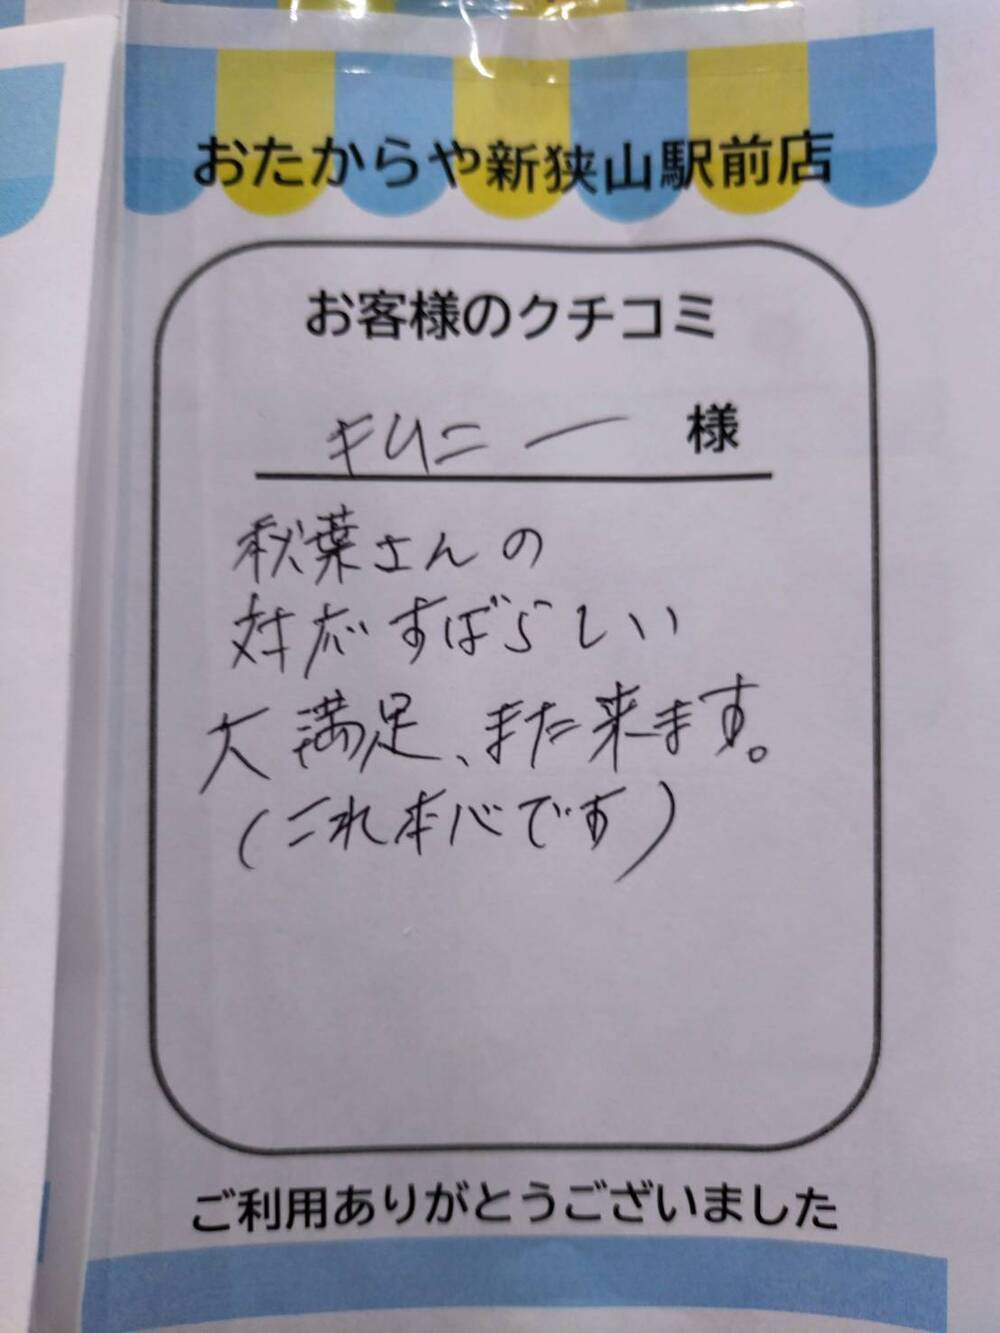 おたからや新狭山駅前店
お客様のクチコミ
キリニー 様
秋葉さんの
対応すばらしい
大満足、また来ます。
(これ本心です)
ご利用ありがとうございました